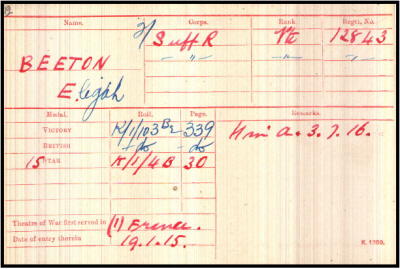 Name. Corps. Rank Regtl. No.
2/ Suff R Pte 12843
BEETON -"- -"- -"- -"-
Elijah
Medal. Roll. Page. Remarks.
VICTORY K/1/103 B2 339
BRITISH -do- -do-
15 STAR K/1/4B 30
K in A. 3.7.16.
Theatre of War first served in (1) France.
Date of entry therein 19.1.15.
K. 1380.